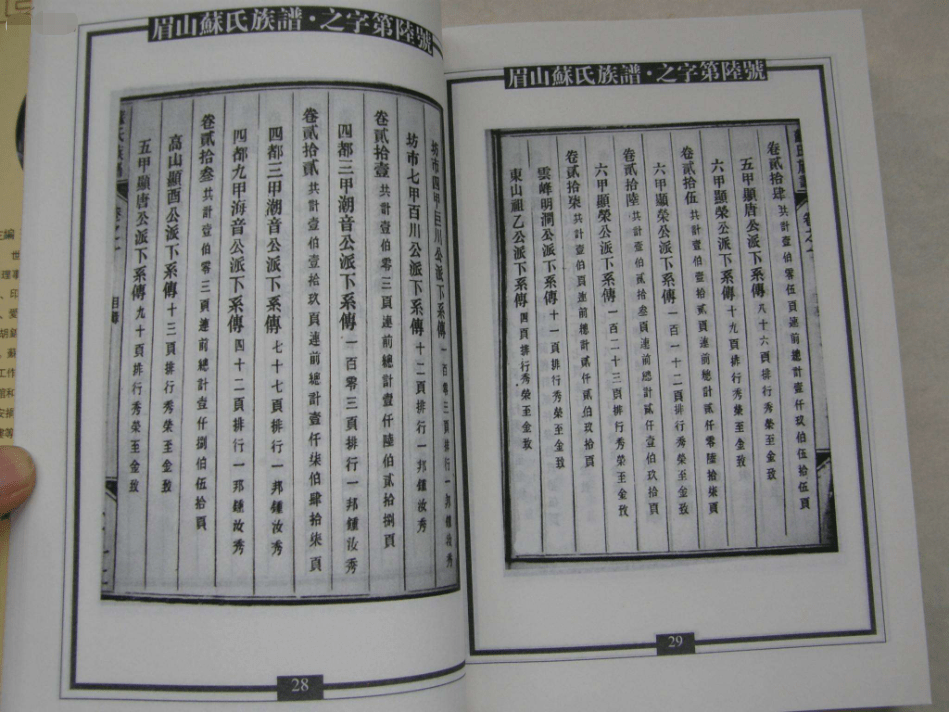 眉山蘇氏族譜·之字第陸號
坊市四甲巨川公派下系傳 一百零三頁排行一邦鍾汝秀
坊市七甲百川公派下系傳 十二頁排行一邦鍾汝秀
卷貳拾壹 共計壹伯零三頁連前總計壹仟陸伯貳拾捌頁
四都三甲潮音公派下系傳 一百零三頁排行一邦鍾汝秀
卷貳拾貳 共計壹伯壹拾玖頁連前總計壹仟柒伯肆拾柒頁
四都三甲潮音公派下系傳 七十七頁排行一邦鍾汝秀
四都九甲海音公派下系傳 四十二頁排行一邦鍾汝秀
卷貳拾叁 共計壹伯零三頁連前總計壹仟捌伯伍拾頁
高山顯酉公派下系傳 十三頁排行秀榮至金致
五甲顯唐公派下系傳 九十頁排行秀榮至金致
氏族譜 目錄
28
眉山蘇氏族譜·之字第陸號
卷貳拾肆 共計壹伯零伍頁連前總計壹仟玖伯伍拾伍頁
五甲顯唐公派下系傳 八十六頁排行秀榮至金致
六甲顯榮公派下系傳 十九頁排行秀榮至金致
卷貳拾伍 共計壹伯壹拾貳頁連前總計貳仟零陸拾柒頁
六甲顯榮公派下系傳 一百一十二頁排行秀榮至金致
卷貳拾陸 共計壹伯貳拾叁頁連前總計貳仟壹伯玖拾頁
六甲顯榮公派下系傳 一百二十三頁排行秀榮至金致
卷貳拾柒 共計壹伯頁連前總計貳仟貳伯玖拾頁
雲峰明潤公派下系傳 十一頁排行秀榮至金致
東山祖乙公派下系傳 四頁排行秀榮至金致
29